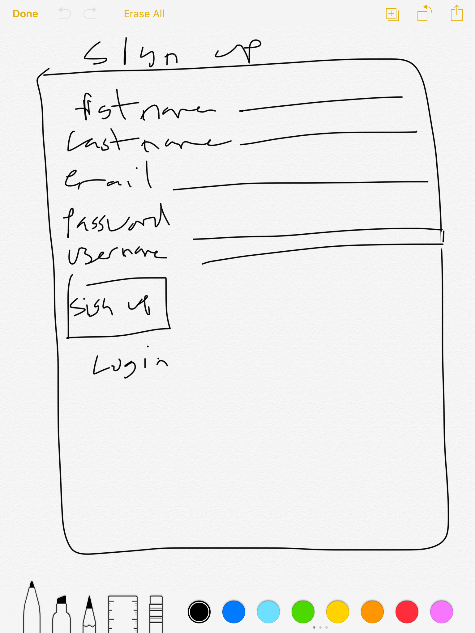 Done Erase All
Sign up
firstname
Lastname
email
password
username
sign up
Login